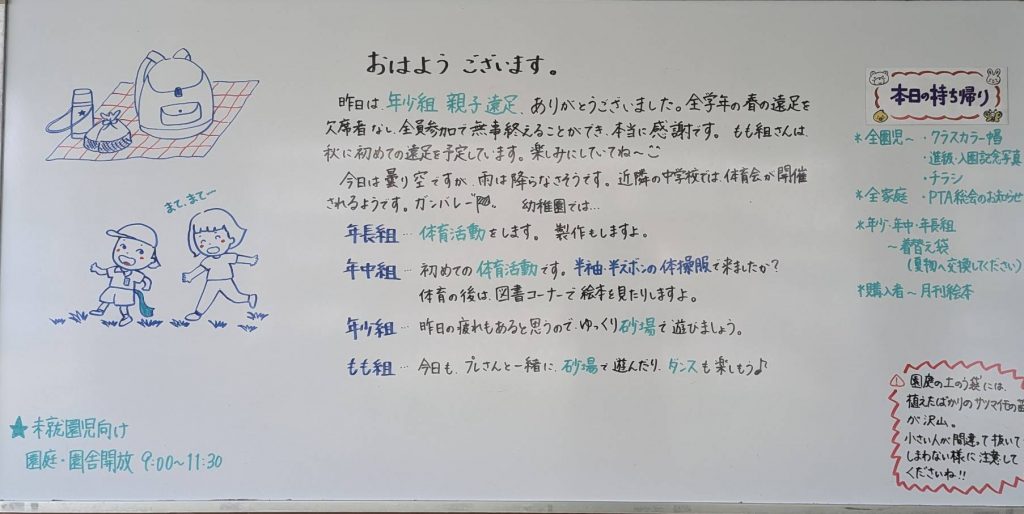 おはよう ございます。
昨日は 年少組 親子遠足、ありがとうございました。全学年の春の遠足を
欠席者なし、全員参加で無事終えることができ、本当に感謝です。 もも組さんは、
秋に初めての遠足を予定しています。楽しみにしていてね〜
今日は曇り空ですが、雨は降らなさそうです。近隣の中学校では、体育会が開催
されるようです。ガンバレー 幼稚園では…
年長組… 体育活動をします。 製作もしますよ。
年中組… 初めての体育活動です。半袖・半ズボンの体操服で来ましたか?
体育の後は、図書コーナーで絵本を見たりしますよ。
年少組… 昨日の疲れもあると思うので、ゆっくり砂場で遊びましょう。
もも組… 今日も、プレさんと一緒に、砂場で遊んだり、ダンスも楽しもう♪
まて、まて…
★未就園児向け
園庭・園舎開放 9:00〜11:30
本日の持ち帰り
*全園児〜・クラスカラー帽
・進級・入園記念写真
・チラシ
*全家庭 ・PTA総会のお知らせ
*年少・年中・年長組
〜着替え袋
(夏物へ交換してください)
*購入者〜月刊絵本
! 園庭の土のう袋には、
植えたばかりのサツマイモの苗
が沢山。
小さい人が間違って抜いて
しまわない様に注意して
くださいね!!